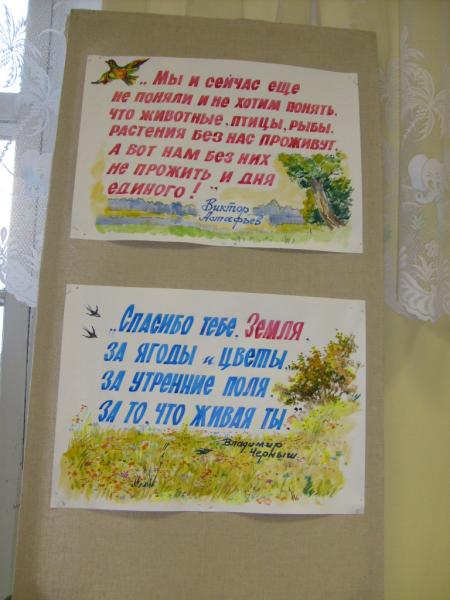 „Мы и сейчас еще
не поняли и не хотим понять,
что животные, птицы, рыбы,
растения без нас проживут,
а вот нам без них
не прожить и дня
единого!"
Виктор
Астафьев
„Спасибо тебе, Земля,
за ягоды и цветы,
за утренние поля,
за то, что живая ты."
Владимир
Черныш